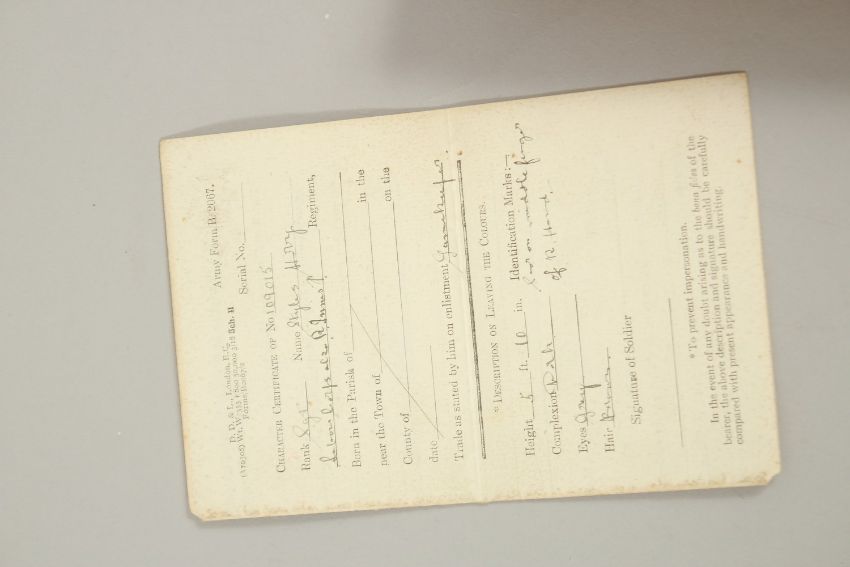 Army Form B. 2067.
D. D. & L., London, E.C.
Wt. W 1 50,000 Sch. H
Forms
Serial No.
CHARACTER CERTIFICATE OF No 109015
Rank Sgt Name Styles H
Labour Corps Regiment,
Born in the Parish of in the
near the Town of on the
County of
date
Trade as stated by him on enlistment Gamekeeper.
* DESCRIPTION ON LEAVING THE COLOURS.
Height 5 ft. 10 in. Identification Marks:—
Complexion Dark on middle finger
Eyes Grey of R. Hand.
Hair Brown.
Signature of Soldier
* To prevent impersonation.
In the event of any doubt arising as to the bona fides of the
bearer, the above description and signature should be carefully
compared with present appearance and handwriting.